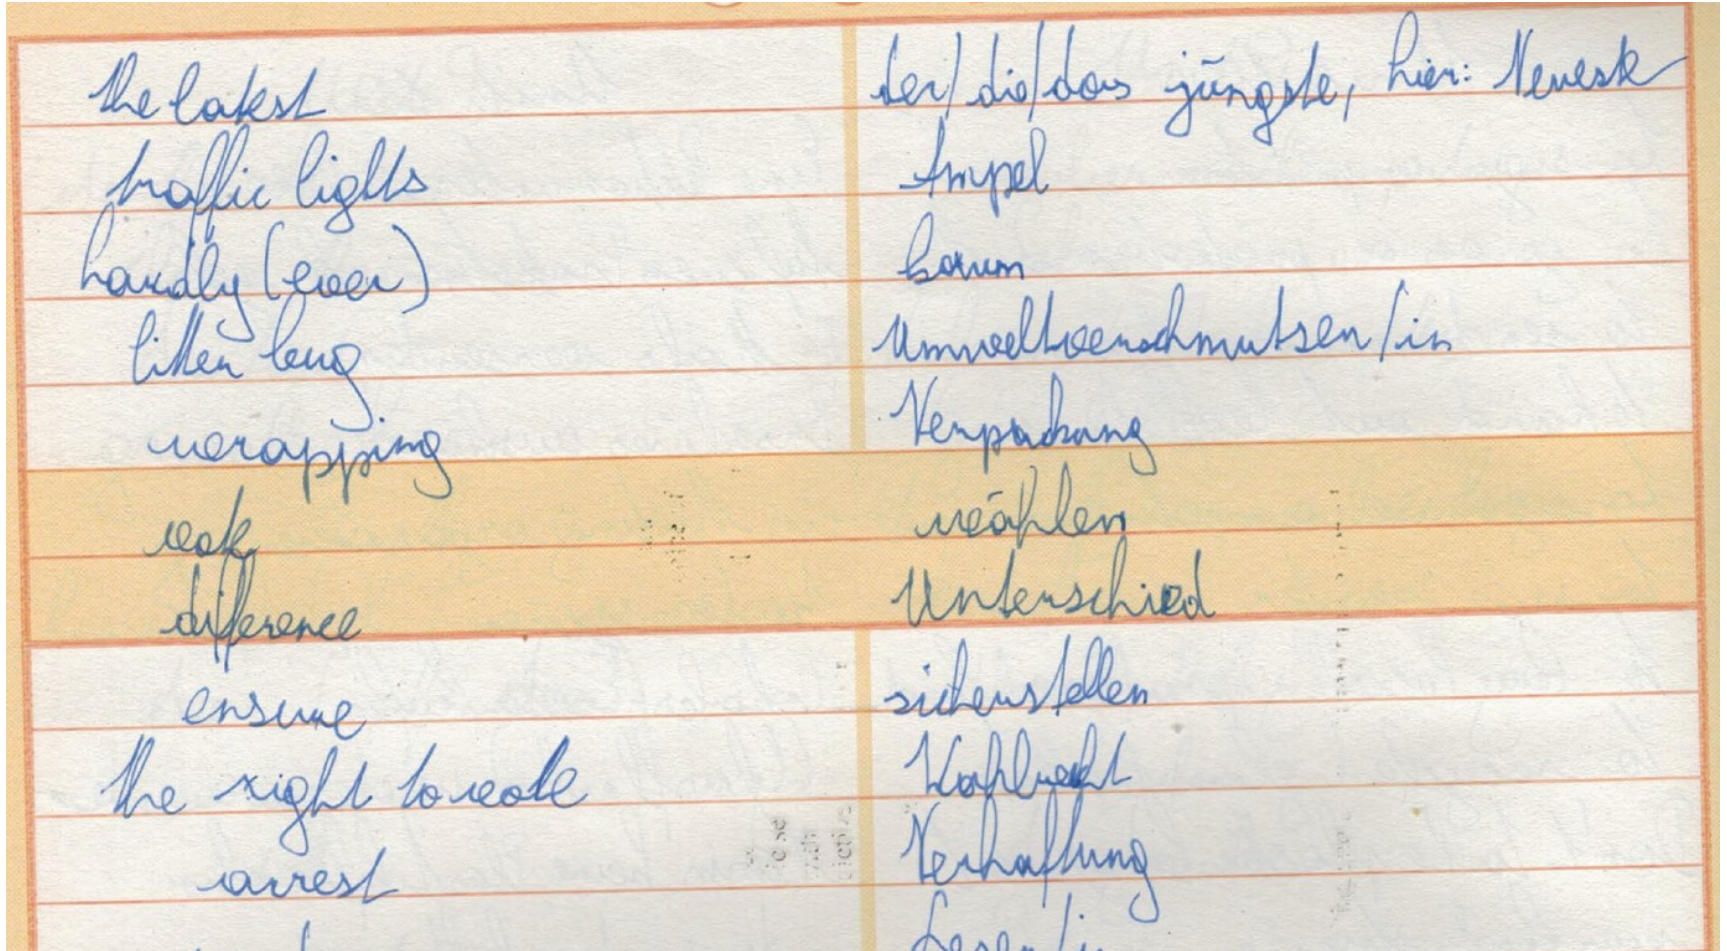 the latest der/die/das jüngste, hier: Neueste
traffic lights Ampel
hardly (ever) kaum
litter bug Umweltverschmutzer/in
wrapping Verpackung
vote wählen
difference Unterschied
ensure sicherstellen
the right to vote Wahlrecht
arrest Verhaftung
Leser/in